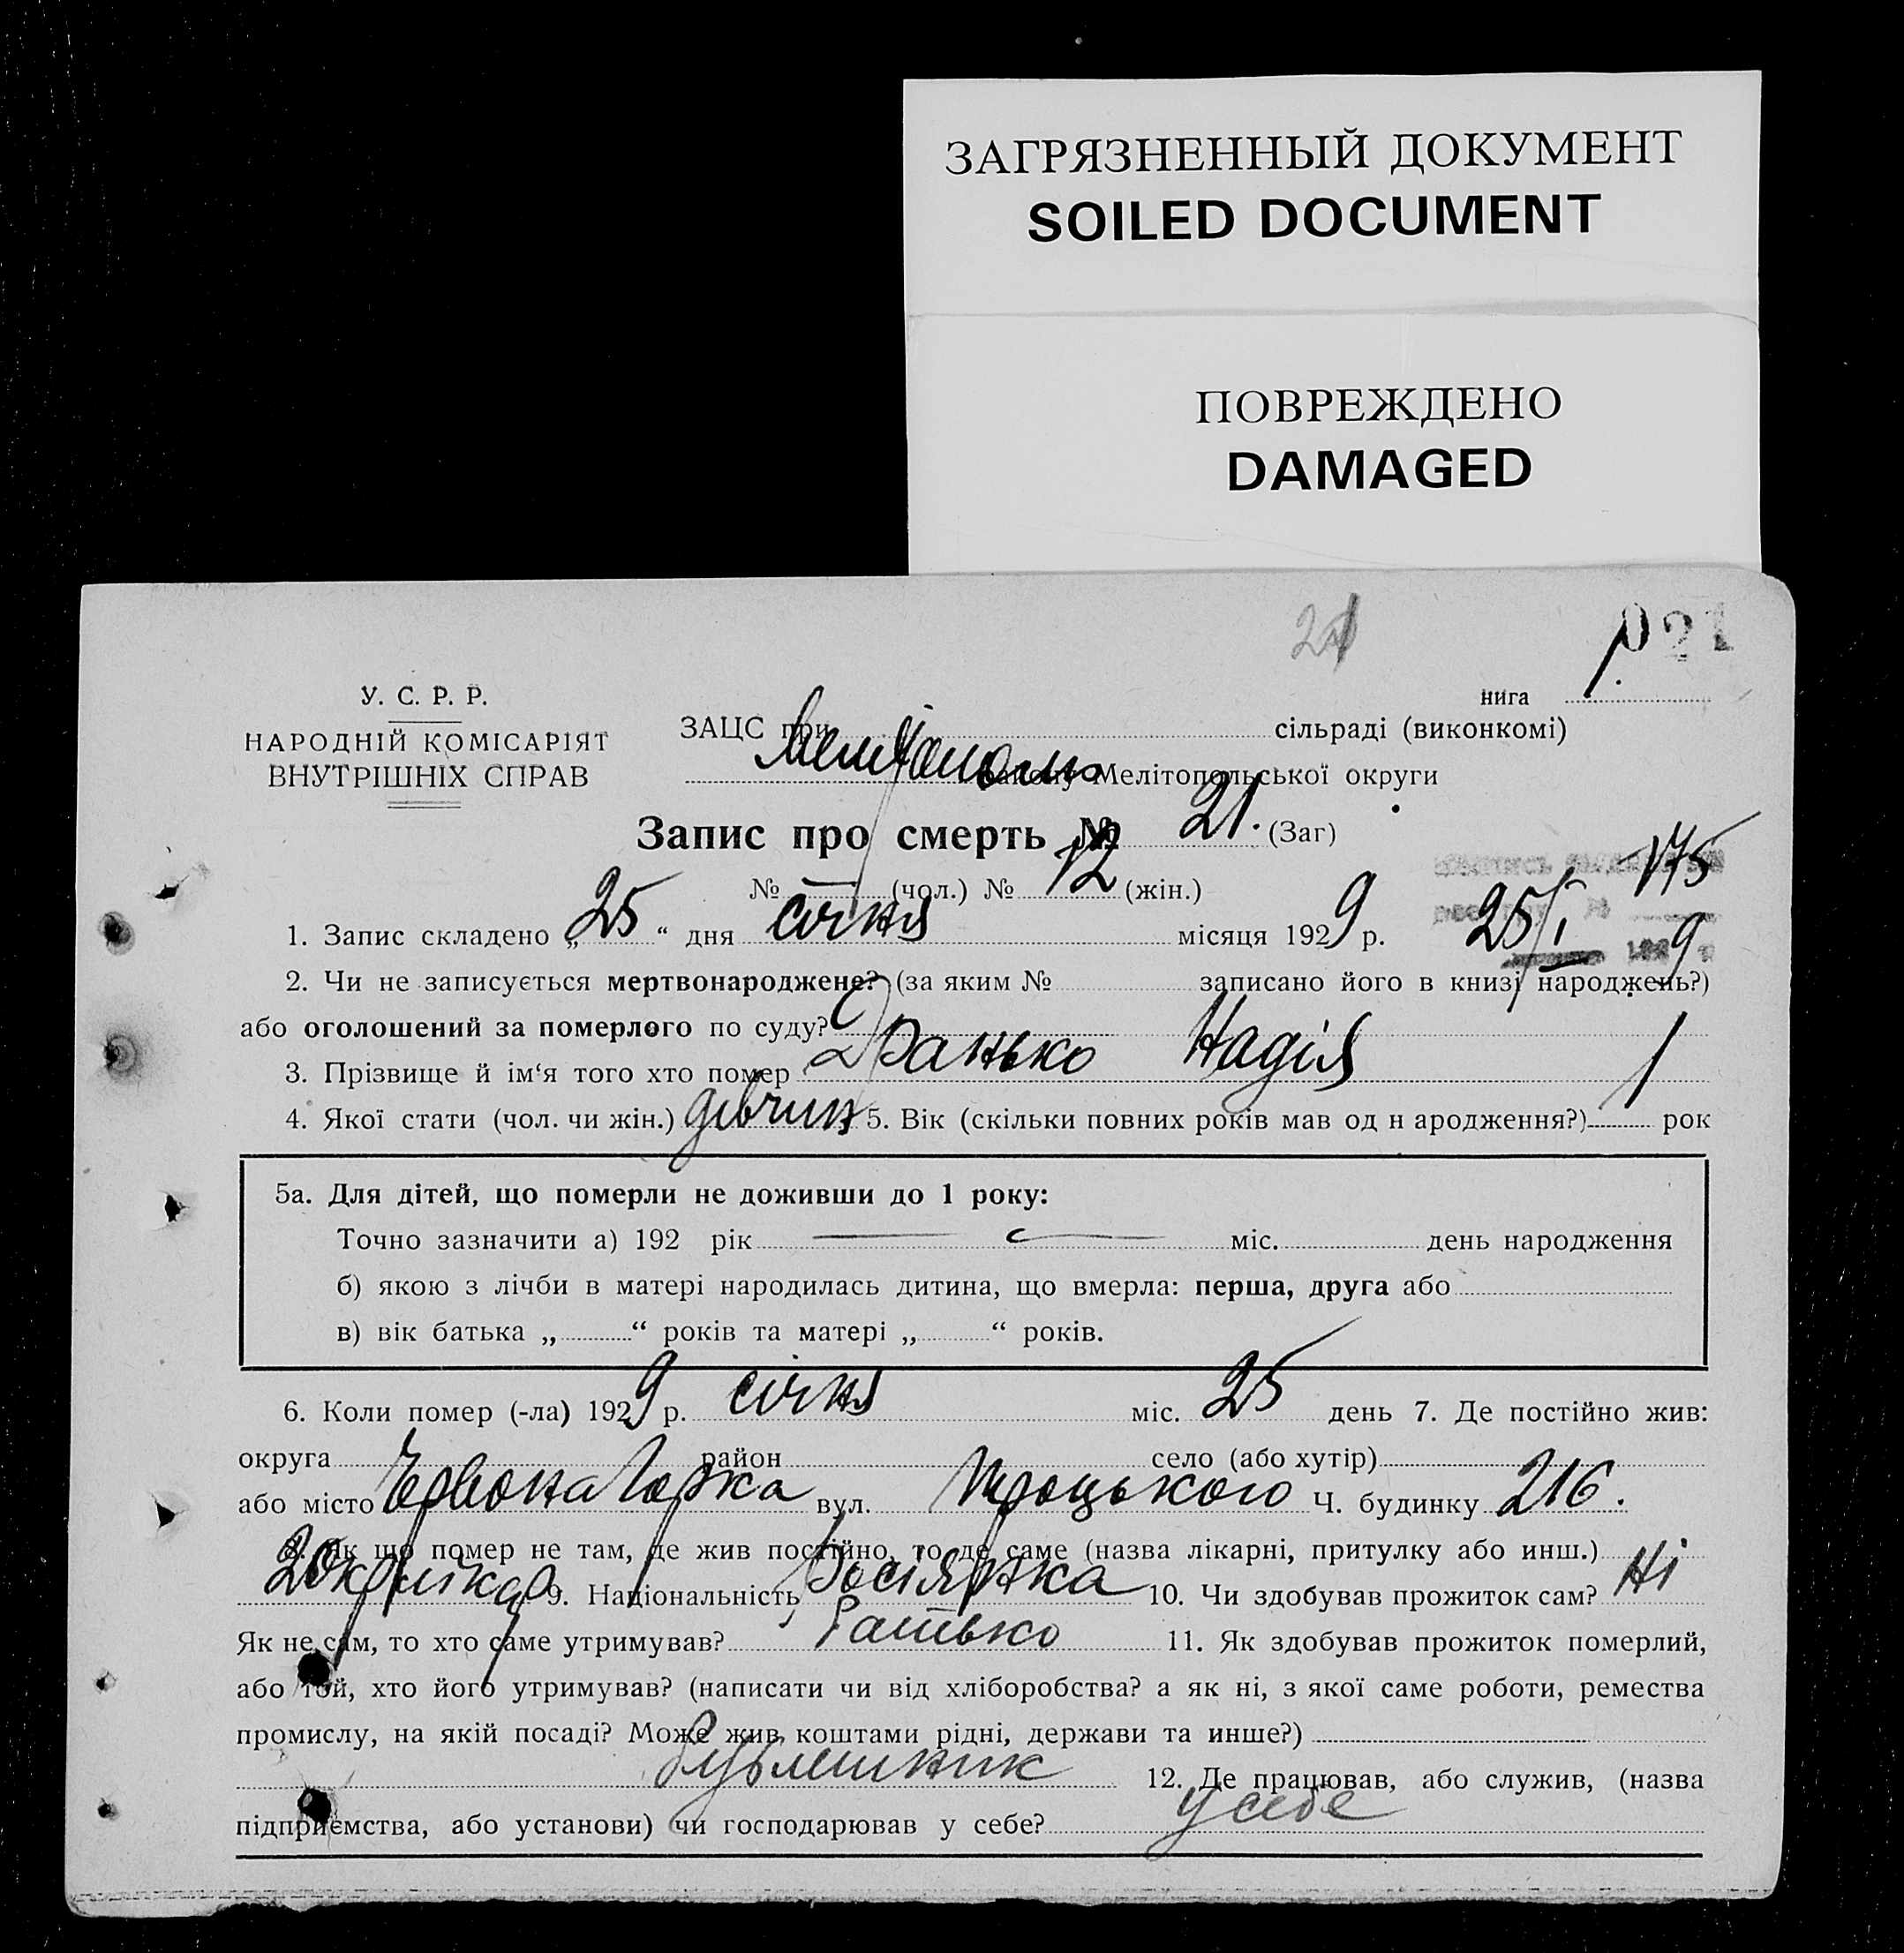 ЗАГРЯЗНЕННЫЙ ДОКУМЕНТ
SOILED DOCUMENT
ПОВРЕЖДЕНО
DAMAGED
21
021
У. С. Р. Р.
НАРОДНІЙ КОМІСАРІЯТ
ВНУТРІШНІХ СПРАВ
нига 1.
ЗАЦС при сільраді (виконкомі)
Мелітополь району Мелітопольської округи
Запис про смерть № 21. (Заг)
№ — (чол.) № 12 (жін.)
175
25/I 9
1. Запис складено „25“ дня січня місяця 1929 р.
2. Чи не записується мертвонароджене? (за яким № записано його в книзі народжень?)
або оголошений за померлого по суду?
3. Прізвище й ім‘я того хто помер Надія
4. Якої стати (чол. чи жін.) 5. Вік (скільки повних років мав од н ародження?) 1 рок
5а. Для дітей, що померли не доживши до 1 року:
Точно зазначити а) 192 рік міс. день народження
б) якою з лічби в матері народилась дитина, що вмерла: перша, друга або
в) вік батька „ “ років та матері „ “ років.
6. Коли помер (-ла) 1929 р. січня міс. 25 день 7. Де постійно жив:
округа район село (або хутір)
або місто Червона Горка вул. Троцького Ч. будинку 216.
8. Як що помер не там, де жив постійно, то де саме (назва лікарні, притулку або инш.)
9. Національність Росіянка 10. Чи здобував прожиток сам? Ні
Як не сам, то хто саме утримував? Батько 11. Як здобував прожиток померлий,
або той, хто його утримував? (написати чи від хліборобства? а як ні, з якої саме роботи, ремества
промислу, на якій посаді? Може жив коштами рідні, держави та инше?)
12. Де працював, або служив, (назва
підприємства, або установи) чи господарював у себе? у себе